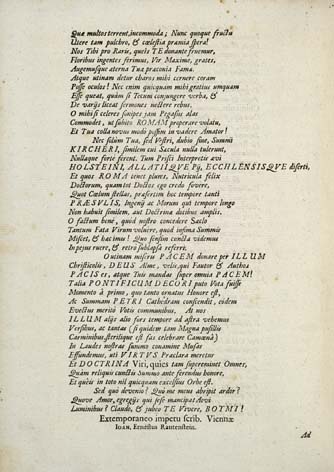 Quæ multos terrent, incommoda; Nunc quoque fructu
Utere tam pulchro, & cœlestia præmia spera!
Nos Tibi pro Raris, queis TE donante fruemur,
Floribus ingentes ferimus, Vir Maxime, grates,
Augemusque æterna Tua præconia Fama.
Atque utinam detur charos mihi cernere coram
Posse oculos! Nec enim quicquam mihi gratius umquam
Esse queat, quàm si Tecum conjungere verba, &
De varijs liceat sermones nectere rebus.
O mihi si celeres pennas jam Pegasus alas
Commodet, ut subitò ROMAM properare volatu,
Et Tua colla novus modò possim invadere Amator!
Nec solùm Tua, sed Vestri, dubio sine, Summi
KIRCHERI, similem cui Sæcula nulla tulerunt,
Nullaque fortè ferent. Tum Prisci Interpretis ævi
HOLSTEINI, ALLATIIQVE Pij, ECCHLENSISQVE diserti,
Et quos ROMA tenet plures, Nutricula felix
Doctorum, quamtot Doctos ego credo fovere,
Quot Cœlum stellas, præsertim hoc tempore tanti
PRÆSVLIS, Ingenij ac Morum qui tempore longo
Non habuit similem, aut Doctrinæ divitis amplis.
O factum benè, quòd nostro concedere Sæclo
Tantum Fata Virum voluere, quod infima Summis
Miscet, & hac imus! Quo sensim cuncta videmus
In pejus ruere, & retrò sublapsa referre.
O utinam miseris PACEM donare per ILLUM
Christicolis, DEUS Alme, velis, qui Fautor & Author
PACIS es, atque Tuis mandas super omnia PACEM!
Talia PONTIFICUM DECORI puto Vota fuisse
Momento à primo, quo tanto ornatus Honore est,
Ac Summam PETRI Cathedram conscendit, eidem
Evectus meritò Votis communibus. At nos
ILLUM aliàs alio fors tempore ad astra vehemus
Versibus, at tantas (si quidem tam Magna pusillis
Carminibus, sterilique est fas celebrare Camœnâ)
In Laudes nostræ summo conamine Musas
Effundemus, uti VIRTVS Præclara meretur
Et DOCTRINA Viri, quies tam supereminet Omnes,
Quàm reliquis cunctis Summo ante ferendus honore,
Et queis in toto nil quicquam excelsius Orbe est.
Sed quò devenio? Quò me meus abripit ardor?
Quove Amor, egregijs qui sese mancipat Ævi
Luminibus? Claudo, & jubeo TE Vivere, BOYMI!
Extemporaneo impetu scrib. Viennæ
Ioan. Ernestus Rautenstein.
Ad